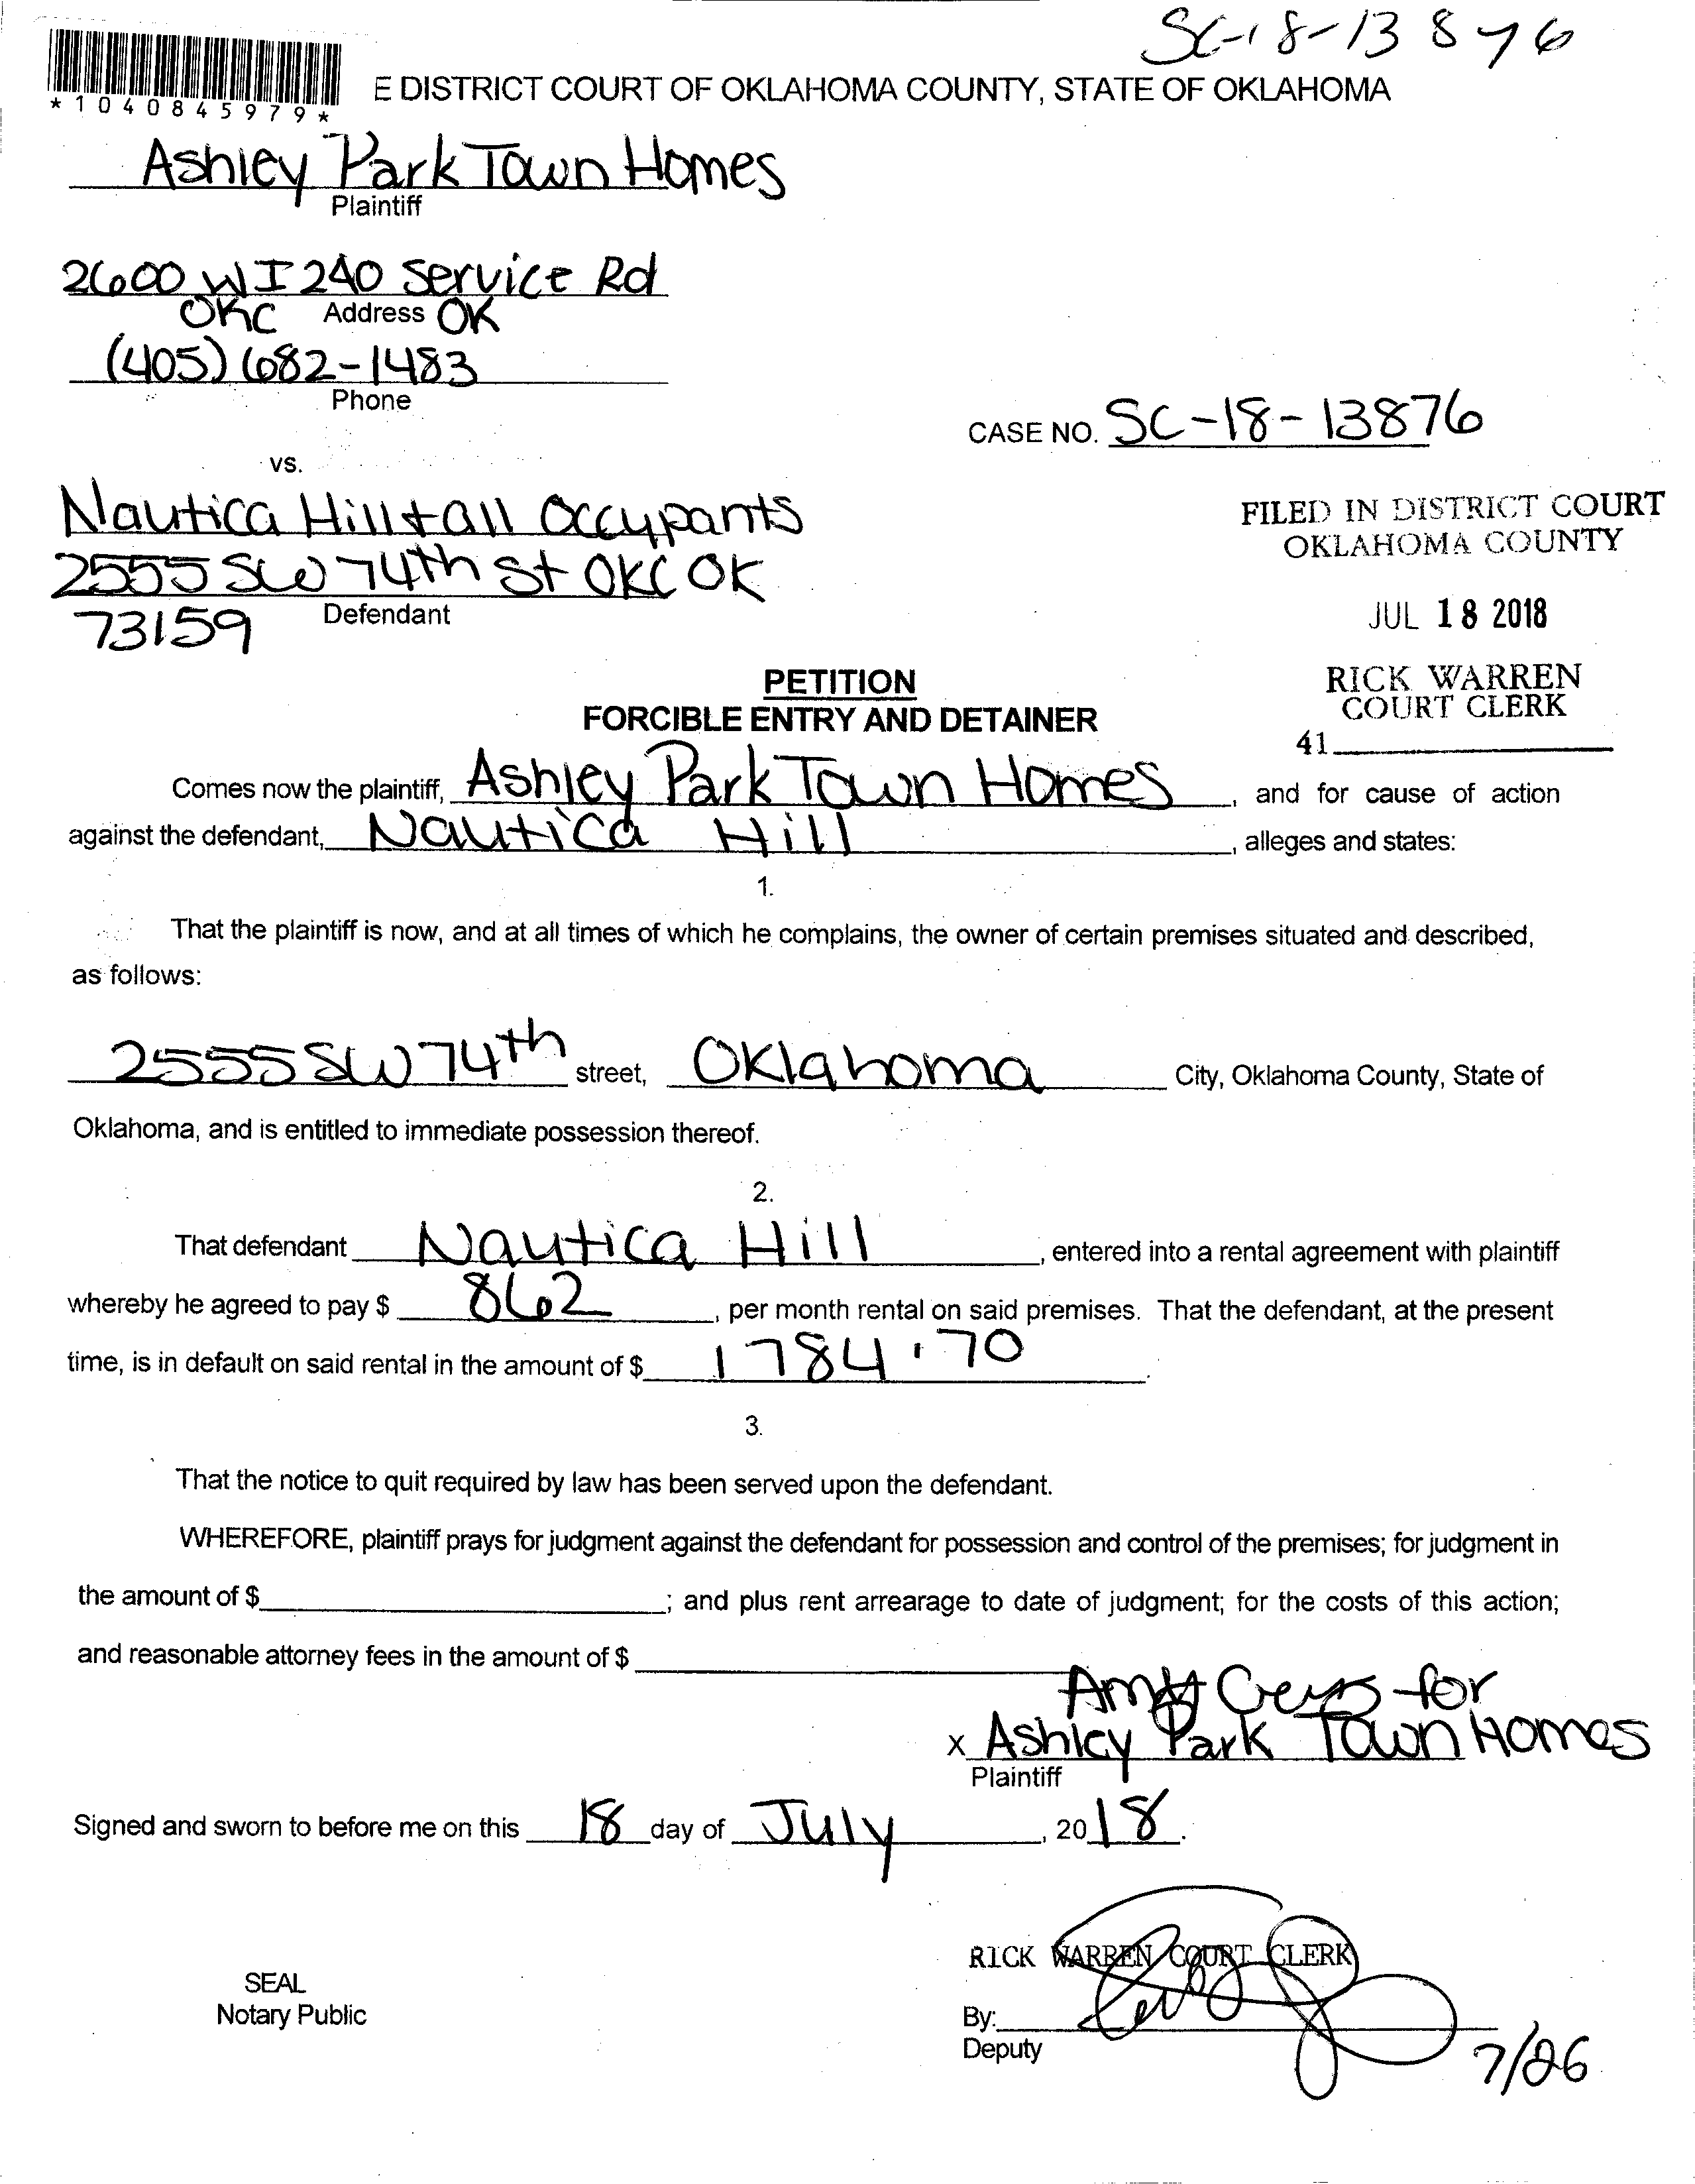 SC-18-13876
*1040845979*
E DISTRICT COURT OF OKLAHOMA COUNTY, STATE OF OKLAHOMA
Ashley Park Town Homes
Plaintiff
2600 W I 240 Service Rd
OKC Address OK
(405) 682-1483
Phone
CASE NO. SC-18-13876
vs.
Nautica Hill + all Occupants
2555 SW 74th St OKC OK
73159 Defendant
FILED IN DISTRICT COURT
OKLAHOMA COUNTY
JUL 18 2018
RICK WARREN
COURT CLERK
41
PETITION
FORCIBLE ENTRY AND DETAINER
Comes now the plaintiff, Ashley Park Town Homes, and for cause of action
against the defendant, Nautica Hill, alleges and states:
1.
That the plaintiff is now, and at all times of which he complains, the owner of certain premises situated and described,
as follows:
2555 SW 74th street, Oklahoma City, Oklahoma County, State of
Oklahoma, and is entitled to immediate possession thereof.
2.
That defendant Nautica Hill, entered into a rental agreement with plaintiff
whereby he agreed to pay $ 862, per month rental on said premises. That the defendant, at the present
time, is in default on said rental in the amount of $ 1784.70.
3.
That the notice to quit required by law has been served upon the defendant.
WHEREFORE, plaintiff prays for judgment against the defendant for possession and control of the premises; for judgment in
the amount of $ ; and plus rent arrearage to date of judgment; for the costs of this action;
and reasonable attorney fees in the amount of $
Amy for
x Ashley Park Town Homes
Plaintiff
Signed and sworn to before me on this 18 day of July, 2018.
RICK WARREN COURT CLERK
SEAL
Notary Public
By:
Deputy
7/26